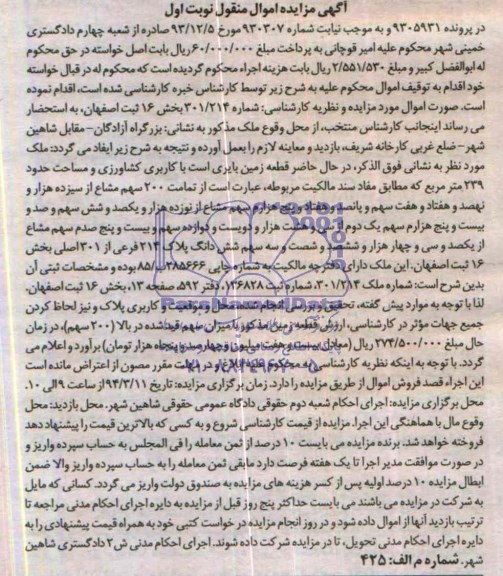 آگهی مزایده اموال منقول نوبت اول
در پرونده ۹۳۰۵۹۳۱ و به موجب نیابت شماره ۹۳۰۳۰۷ مورخ ۹۳/۱۲/۵ صادره از شعبه چهارم دادگستری
خمینی شهر محکوم علیه امیر قوچانی به پرداخت مبلغ ۶۰/۰۰۰/۰۰۰ ریال بابت اصل خواسته در حق محکوم
له ابوالفضل کبیر و مبلغ ۲/۵۵۱/۵۳۰ ریال بابت هزینه اجراء محکوم گردیده است که محکوم له در قبال خواسته
خود اقدام به توقیف اموال محکوم علیه به شرح زیر توسط کارشناس خبره کارشناسی شده است، اقدام نموده
است. صورت اموال مورد مزایده و نظریه کارشناسی: شماره ۳۰۱/۲۱۴ بخش ۱۶ ثبت اصفهان، به استحضار
می رساند اینجانب کارشناس منتخب، از محل وقوع ملک مذکور به نشانی: بزرگراه آزادگان- مقابل شاهین
شهر- ضلع غربی کارخانه شریف، بازدید و معاینه لازم را بعمل آورده و نتیجه به شرح زیر ایفاد می گردد: ملک
مورد نظر به نشانی فوق الذکر، در حال حاضر قطعه زمین بایری است با کاربری کشاورزی و مساحت حدود
۲۳۹ متر مربع که مطابق مفاد سند مالکیت مربوطه، عبارت است از تمامت ۲۰۰ سهم مشاع از سیزده هزار و
نهصد و هفتاد و هفت سهم و پانصد و هفتاد و سه هزارم سهم مشاع از نوزده هزار و یکصد و شش سهم و صد و
بیست و پنج هزارم سهم یک دوم از سی و هشت هزار و دویست و دوازده سهم و بیست و پنج صدم سهم مشاع
از یکصد و سی و چهار هزار و ششصد و شصت و سه سهم شش دانگ پلاک ۲۱۴ فرعی از ۳۰۱ اصلی بخش
۱۶ ثبت اصفهان. این ملک دارای دفترچه مالکیت به شماره چاپی ۳۸۵۶۶۶ب/۸۵ بوده و مشخصات ثبتی آن
بدین شرح است: شماره ملک ۳۰۱/۲۱۴، شماره ثبت ۱۳۶۸۲۸، دفتر ۵۹۲، صفحه ۱۳، بخش ۱۶ ثبت اصفهان.
لذا با توجه به موارد پیش گفته، تحقیق و بررسی انجام شده، محل و موقعیت و کاربری پلاک و نیز لحاظ کردن
جمیع جهات مؤثر در کارشناسی، ارزش قطعه زمین مذکور با میزان سهم قید شده در بالا (۲۰۰ سهم)، در زمان
حال مبلغ ۲۷۴/۵۰۰/۰۰۰ ریال (معادل بیست و هفت میلیون و چهارصد و پنجاه هزار تومان) برآورد و اعلام می
گردد. با توجه به اینکه نظریه کارشناسی به محکوم علیه ابلاغ و در مهلت مقرر مصون از اعتراض مانده است
این اجراء قصد فروش اموال از طریق مزایده را دارد. زمان برگزاری مزایده: تاریخ ۹۴/۳/۱۱ از ساعت ۹ الی ۱۰.
محل برگزاری مزایده: اجرای احکام شعبه دوم حقوقی دادگاه عمومی حقوقی شاهین شهر. محل بازدید: محل
وقوع مال با هماهنگی این اجرا. مزایده از قیمت کارشناسی شروع و به کسی که بالاترین قیمت را پیشنهاد دهد
فروخته خواهد شد. برنده مزایده می بایست ۱۰ درصد از ثمن معامله را فی المجلس به حساب سپرده واریز و
در صورت موافقت مدیر اجرا تا یک هفته فرصت دارد مابقی ثمن معامله را به حساب سپرده واریز والا ضمن
ابطال مزایده ۱۰ درصد اولیه پس از کسر هزینه های مزایده به صندوق دولت واریز می گردد. کسانی که مایل
به شرکت در مزایده می باشند می بایست حداکثر پنج روز قبل از مزایده به دایره اجرای احکام مدنی مراجعه تا
ترتیب بازدید آنها از اموال داده شود و در روز انجام مزایده درخواست کتبی خود به همراه قیمت پیشنهادی را به
دایره اجرای احکام مدنی تحویل، تا در مزایده شرکت داده شوند. اجرای احکام مدنی ش۲ دادگستری شاهین
شهر. شماره م الف: ۴۲۵